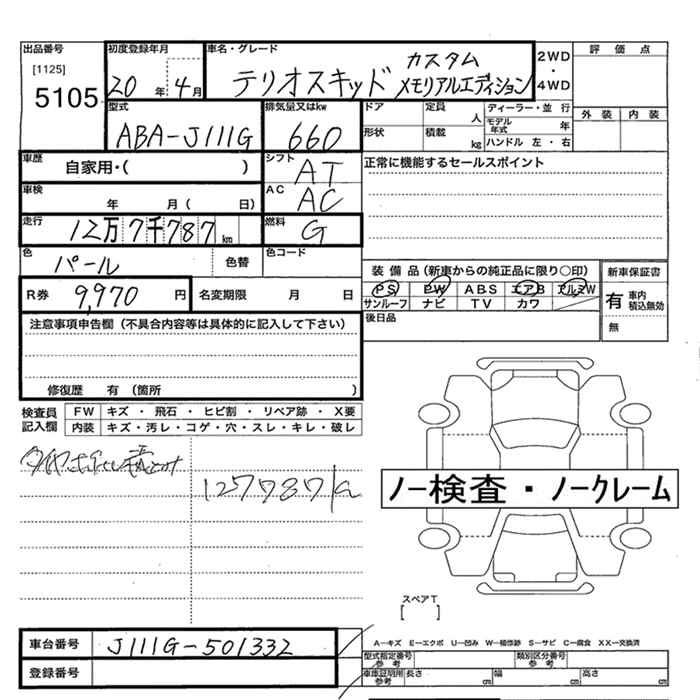 出品番号
[1125]
5105
初度登録年月
20年4月
車名・グレード
テリオスキッド カスタム
メモリアルエディション
2WD
・
4WD
評価点
外装 内装
型式
ABA-J111G
排気量又はkw
660
ドア 定員 人
形状 積載 kg
ディーラー・並行
モデル年式 年
ハンドル 左・右
車歴
自家用・( )
シフト
AT
正常に機能するセールスポイント
車検
年 月( 日)
AC
AC
走行
12万7千787km
燃料
G
色
パール
色替
色コード
R券 9,970円
名変期限 月 日
装備品(新車からの純正品に限り○印)
PS PW ABS エアB アルミW
サンルーフ ナビ TV カワ
新車保証書
有 車内積込無効
無
後日品
注意事項申告欄(不具合内容等は具体的に記入して下さい)
修復歴 有(箇所 )
検査員記入欄
FW キズ・飛石・ヒビ割・リペア跡・X要
内装 キズ・汚レ・コゲ・穴・スレ・キレ・破レ
127787
ノー検査・ノークレーム
スペアT
[ ]
車台番号 J111G-501332
登録番号
A—キズ E—エクボ U—凹み W—補修跡 S—サビ C—腐食 XX—交換済
型式指定番号 参考
類別区分番号 参考
車庫証明所 参考 長さ cm 幅 cm 高さ cm